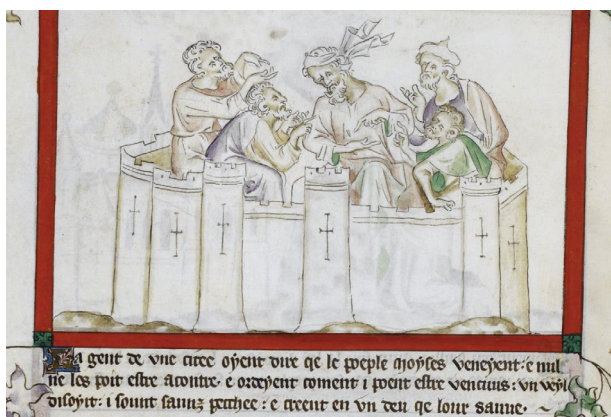 La gent de vne citee oyent dire qe le poeple moyses veneyent · e nul
ne les poit estre acontre · e ordeyent coment i poent estre vencuus : un veyl
disoyt : i sount saunz pecchee : e creent en vn deu qe lour sauue ·